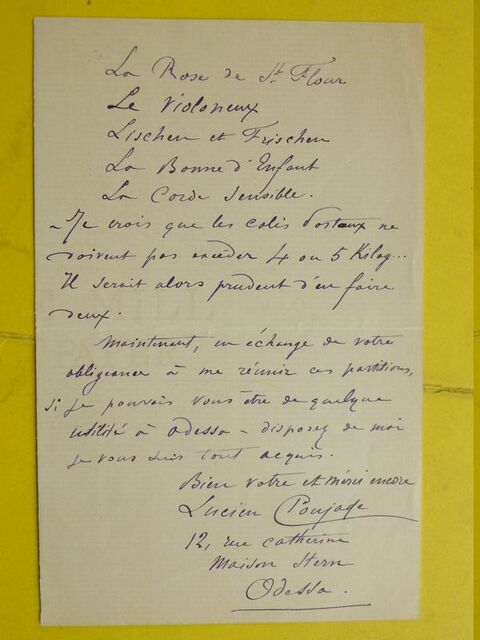 La Rose de St. Flour
Le Violoneux
Lischen et Frischen
La Bonne d'Enfant
La Corde sensible.
- Je crois que les colis Postaux ne
doivent pas excéder 4 ou 5 Kilog...
Il serait alors prudent d'en faire
deux.
Maintenant, en échange de votre
obligeance à me réunir ces partitions,
si je pouvais vous être de quelque
utilité à Odessa - disposez de moi
je vous suis tout acquis.
Bien votre et merci encore
Lucien Poujade
12, rue Catherine
Maison Stern
Odessa.